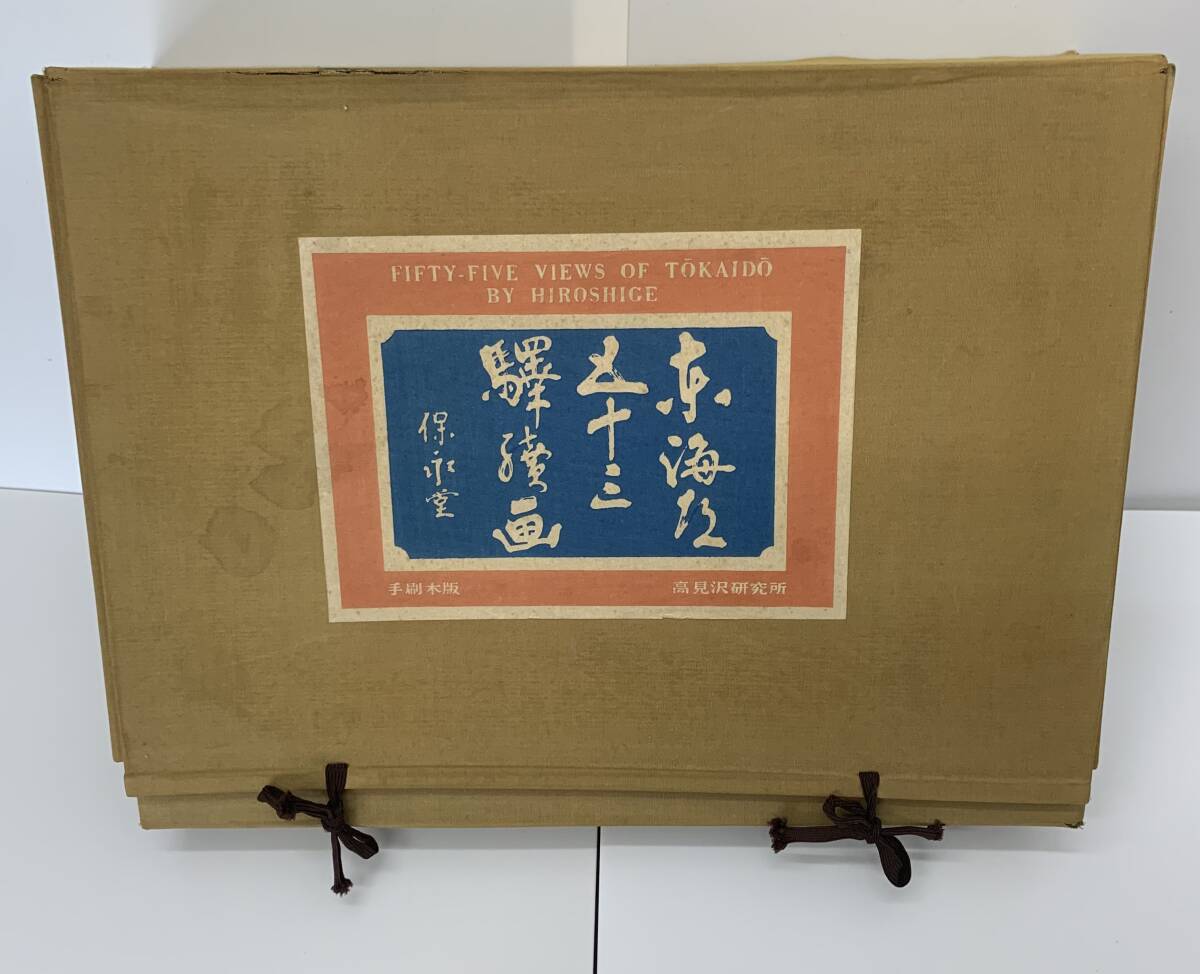 FIFTY-FIVE VIEWS OF TŌKAIDŌ
BY HIROSHIGE
東海道
五十三
驛續画
保永堂
手刷木版
高見沢研究所